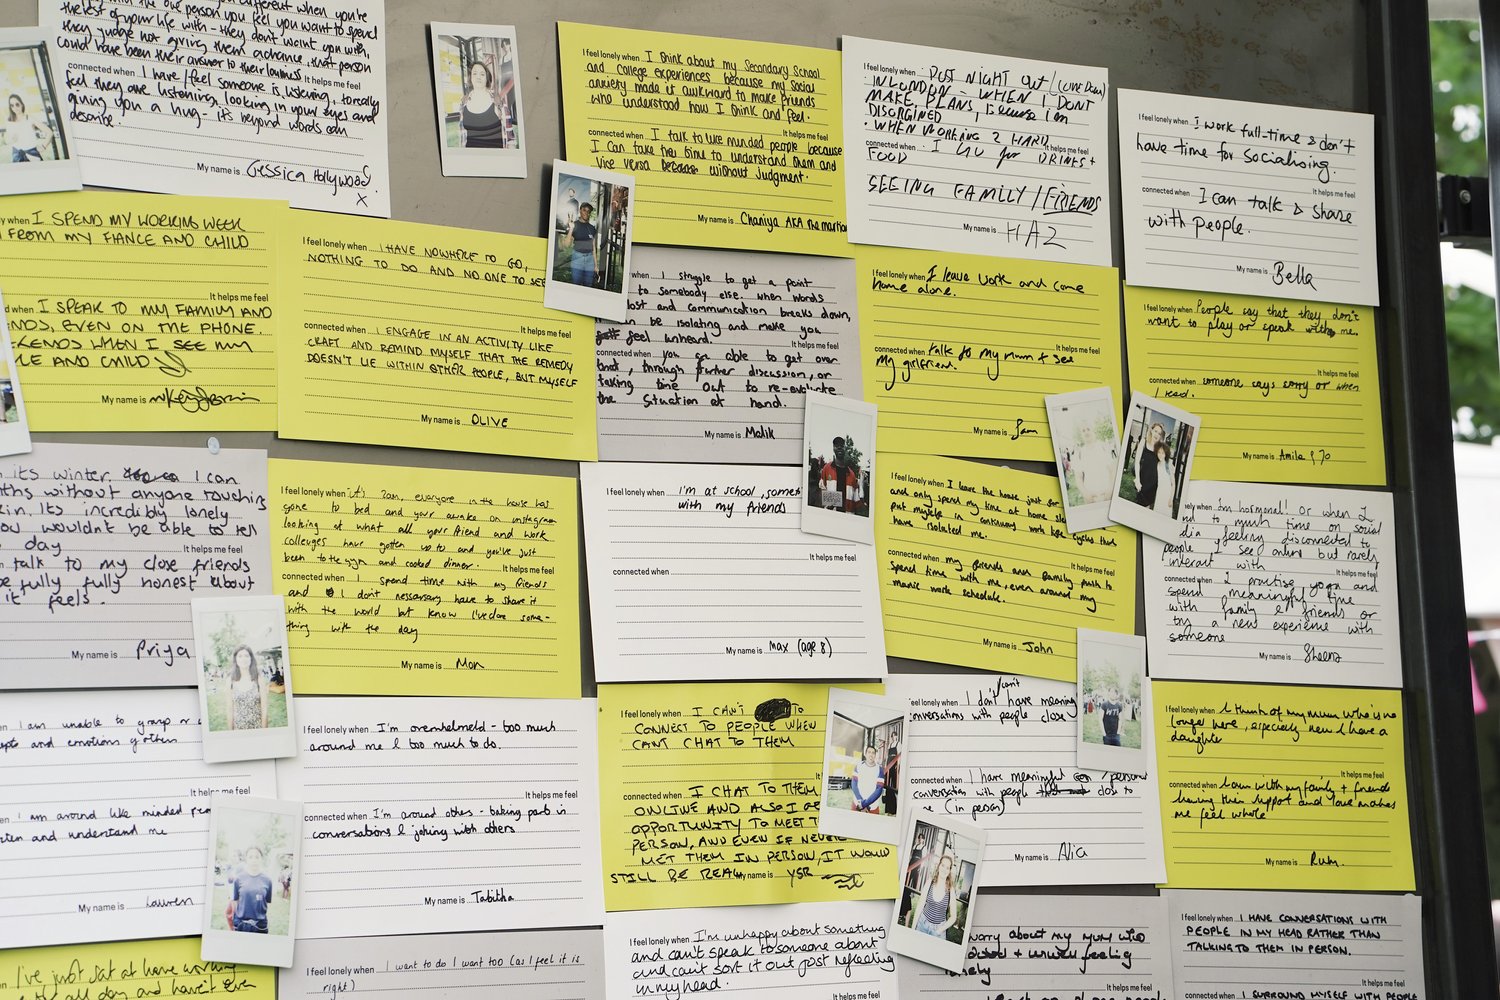 the rest of your life with - they don't want you with,
they judge not giving them a chance, that person
could have been their answer to their loneliness It helps me feel
connected when I have / feel someone is listening, to really
feel they are listening, looking in your eyes and
giving you a hug - it's beyond words can
describe
My name is Gessica Hollywood
X
I feel lonely when I think about my Secondary School
and College experiences because my social
anxiety made it awkward to make friends
who understood how I think and feel.
It helps me feel
connected when I talk to like minded people because
I can take the time to understand them and
vice versa because without judgment.
My name is Chaniya AKA the martian
I feel lonely when POST NIGHT OUT /
IN LONDON - WHEN I DON'T
MAKE PLANS, because I am
DISORGINED
WHEN WORKING 2 HARD
It helps me feel
connected when I GO for DRINKS +
FOOD
SEEING FAMILY / FRIENDS
My name is HAZ
I feel lonely when I work full-time & don't
have time for socialising.
It helps me feel
connected when I can talk & share
with people.
My name is Bella
when I SPEND MY WORKING WEEK
FROM MY FIANCE AND CHILD
It helps me feel
when I SPEAK TO MY FAMILY AND
NDS, EVEN ON THE PHONE.
KENDS WHEN I SEE MY
LE AND CHILD
My name is
I feel lonely when I HAVE NOWHERE TO GO,
NOTHING TO DO AND NO ONE TO SEE
It helps me feel
connected when I ENGAGE IN AN ACTIVITY LIKE
CRAFT AND REMIND MYSELF THAT THE REMEDY
DOESN'T LIE WITHIN OTHER PEOPLE, BUT MYSELF
My name is OLIVE
when I struggle to get a point
to somebody else. when words
lost and communication breaks down,
can be isolating and make you
feel unheard.
It helps me feel
connected when you are able to get over
that, through further discussion, or
taking time out to re-evaluate
the situation at hand.
My name is Malik
I feel lonely when I leave work and come
home alone.
It helps me feel
connected when talk to my mum + see
my girlfriend.
My name is Sam
I feel lonely when People say that they don't
want to play or speak with me.
It helps me feel
connected when someone says sorry or when
I read.
My name is Amila & Jo
its winter, I can
ths without anyone touching
in. Its incredibly lonely
you wouldn't be able to tell
day
It helps me feel
talk to my close friends
be fully fully honest about
it feels.
My name is Priya
I feel lonely when it's 2am, everyone in the house has
gone to bed and your awake on instagram
looking at what all your friend and work
collegues have gotten up to and you've just
been to the gym and cooked dinner. It helps me feel
connected when I spend time with my friends
and I don't nessarsary have to share it
with the world but know I've done some-
thing with the day
My name is Mon
I feel lonely when I'm at school, somet
with my friends
It helps me feel
connected when
My name is Max (age 8)
I feel lonely when I leave the house just for
and only spend my time at home
put myself in continuous work life cycles that
have isolated me.
It helps me feel
connected when my friends and family push to
spend time with me, even around my
manic work schedule.
My name is John
when I'm hormonal! Or when I
nd to much time on social
dia, feeling disconnected to
people I see online but rarely
interact with It helps me feel
connected when I practise yoga and
spend meaningful time
with family & friends or
try a new experience with
someone
My name is Sheena
I am unable to group
and emotions
It helps me feel
I am around like minded
and understand me
My name is Lauren
I feel lonely when I'm overwhelmed - too much
around me & too much to do.
It helps me feel
connected when I'm around others - taking part in
conversations & joking with others
My name is Tabitha
I feel lonely when I CAN'T TO
CONNECT TO PEOPLE WHEN
CAN'T CHAT TO THEM
It
connected when I CHAT TO THEM
ONLINE AND ALSO I GE
OPPORTUNITY TO MEET T
PERSON, AND EVEN IF NEVER
MET THEM IN PERSON, IT WOULD
STILL BE REAL My name is YSR
lonely when I don't/can't have meaning
conversations with people close
It helps me feel
connected when I have meaningful /personal
conversation with people close to
me (in person)
My name is Alia
I feel lonely when I think of my mum who is no
longer here, especially now I have a
daughter
It helps me feel
connected when I am with my family + friends
having their support and love makes
me feel whole
My name is Rum.
I've just sat at home working
all day and haven't even
I feel lonely when I want to do I want too (as I feel it is
right)
It helps me feel
I feel lonely when I'm unhappy about something
and can't speak to someone about
and can't sort it out just reflecting
in my head.
It helps me feel
worry about my mum who
+ unwell feeling
lonely
It helps me feel
I feel lonely when I HAVE CONVERSATIONS WITH
PEOPLE IN MY HEAD RATHER THAN
TALKING TO THEM IN PERSON.
It helps me feel
connected when I SURROUND MYSELF WITH PEOPLE